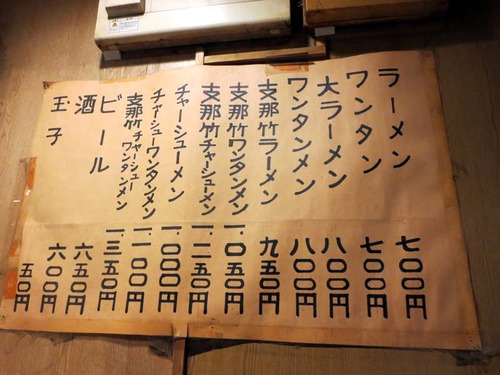 ラーメン 七〇〇円
ワンタン 七〇〇円
大ラーメン 八〇〇円
ワンタンメン 八〇〇円
支那竹ラーメン 九五〇円
支那竹ワンタンメン 一、〇五〇円
支那竹チャーシューメン 一、二五〇円
チャーシューメン 一、〇〇〇円
チャーシューワンタンメン 一、一〇〇円
支那竹チャーシューワンタンメン 一、三五〇円
ビール 六五〇円
酒 六〇〇円
玉子 五〇円